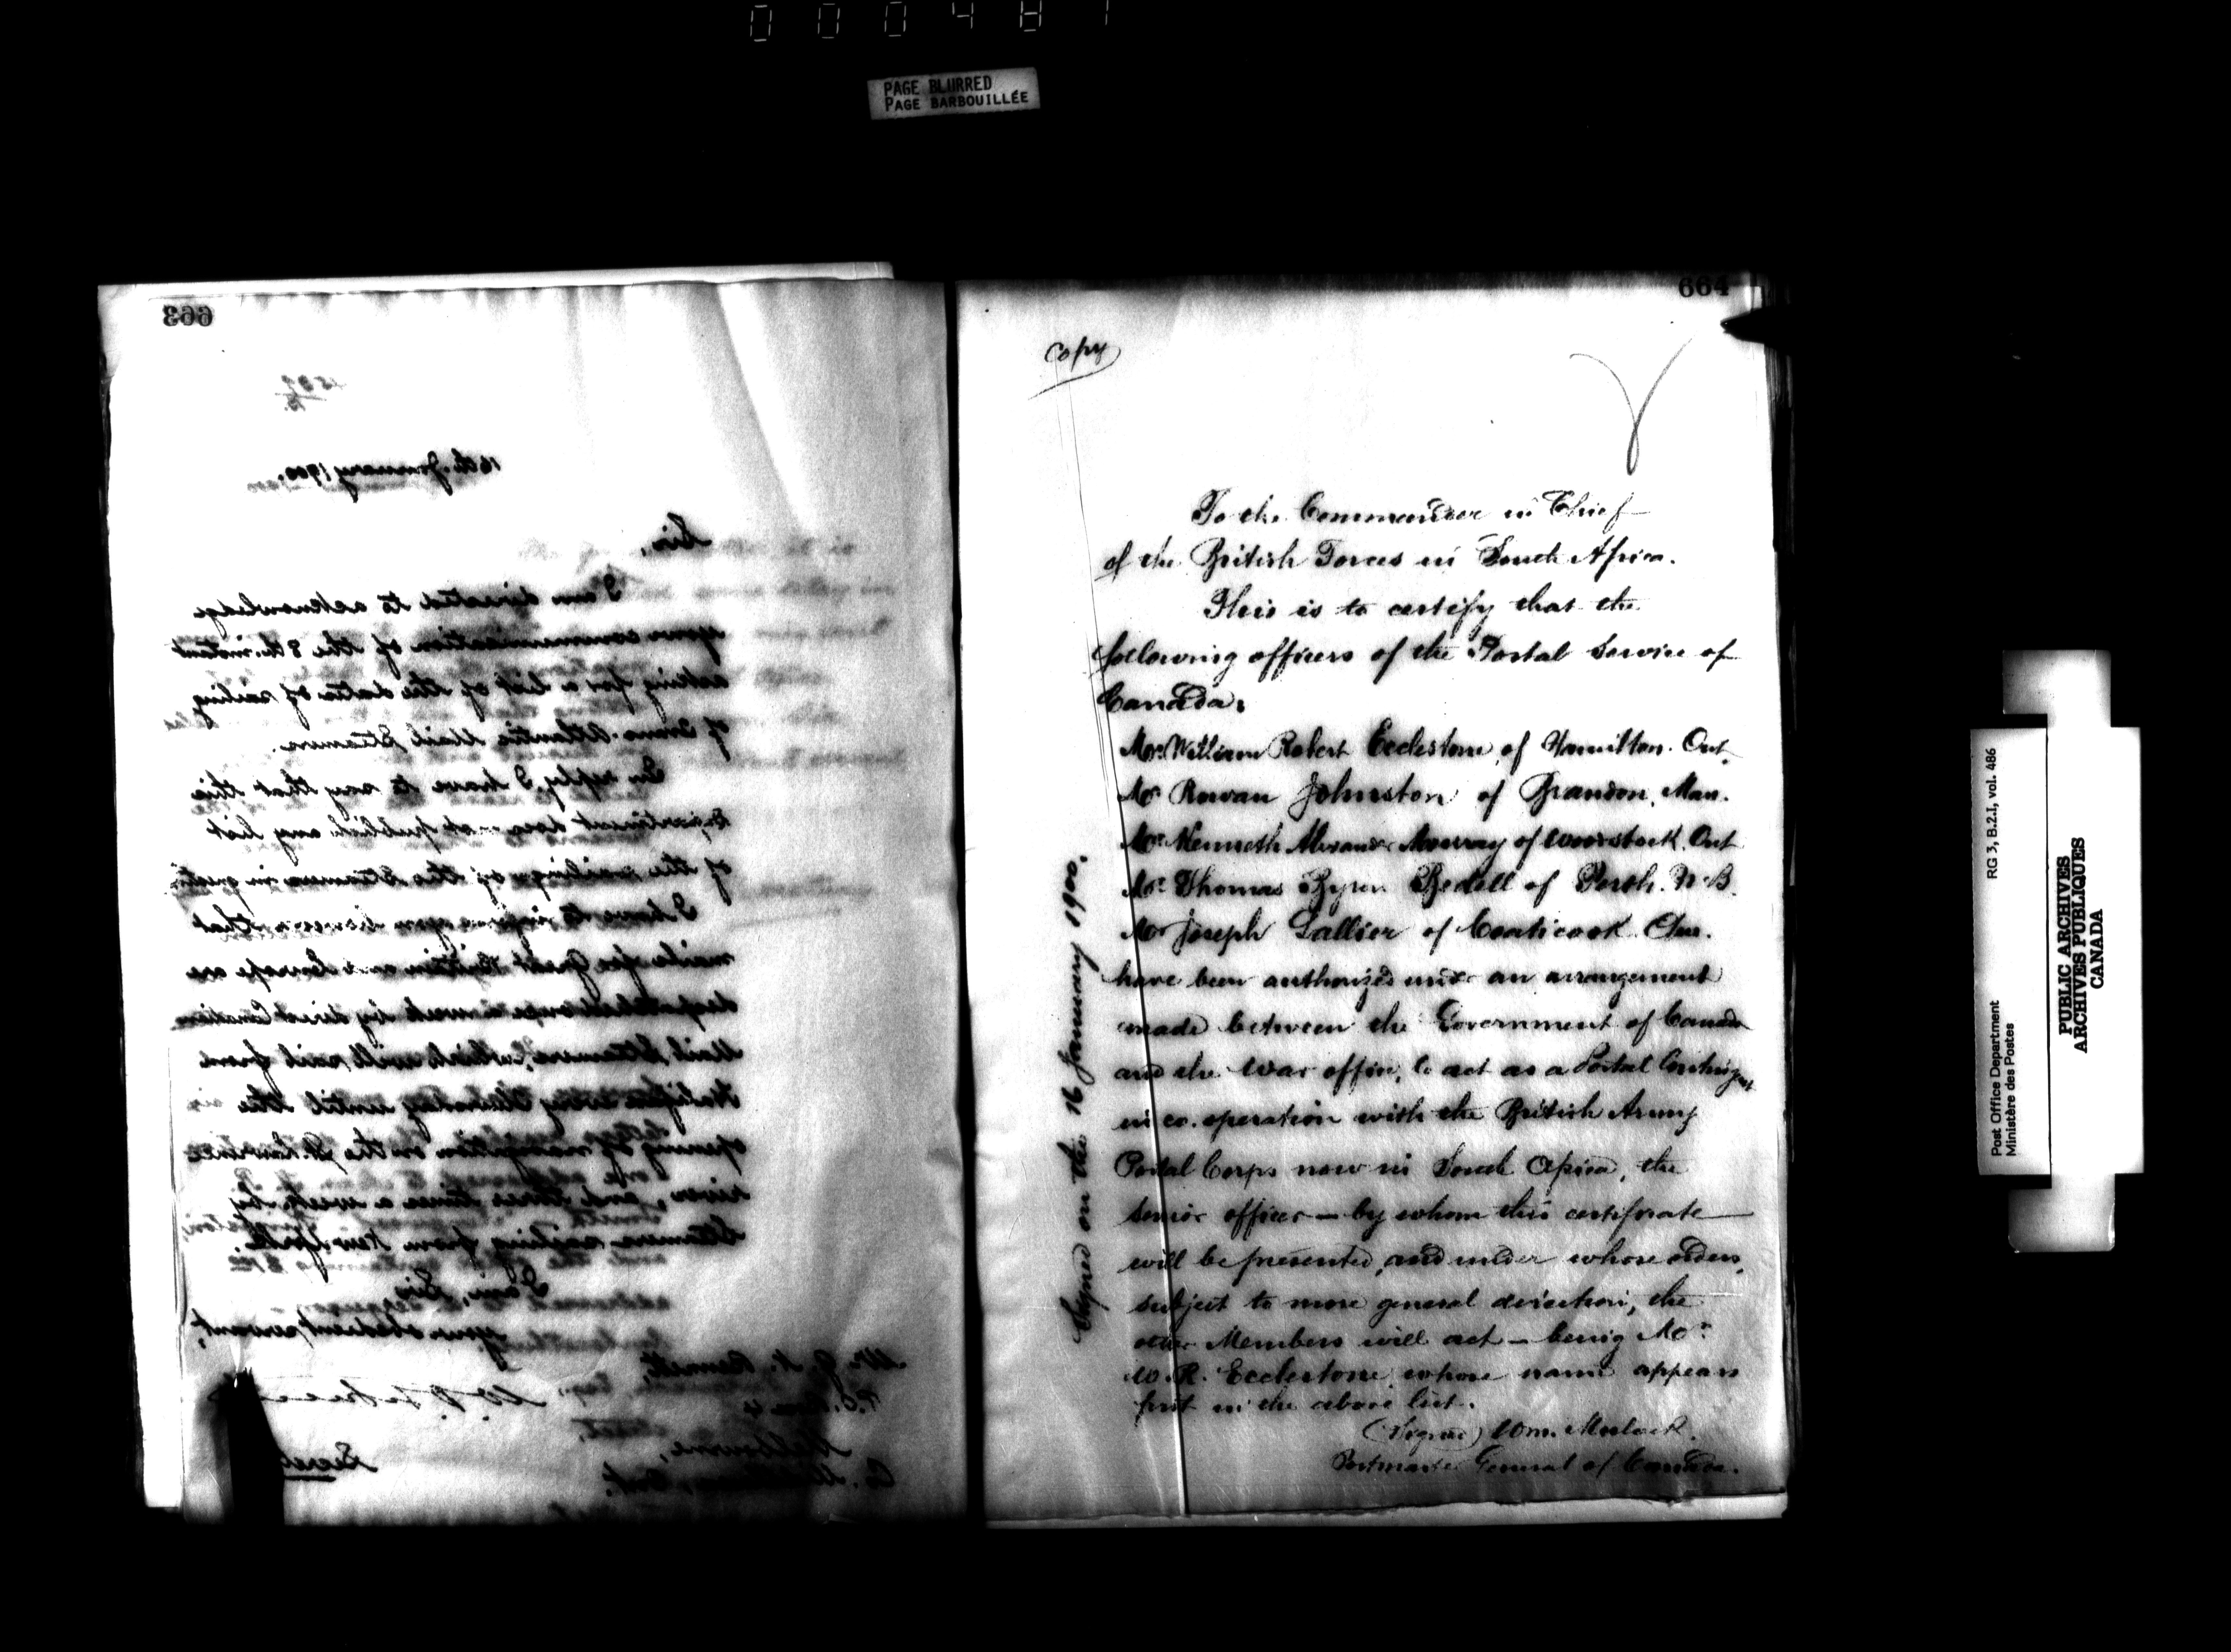 000481
PAGE BLURRED
PAGE BARBOUILLÉE
663
16th January 1900.
Sir,
I am directed to acknowledge
your communication of the 8th instant
asking for a list of the dates of sailing
of Trans-Atlantic Mail Steamers.
In reply, I have to say that this
Department does not publish any list
of the sailings of the Steamers in
I have to inform you however that
mails for Great Britain and Europe are
despatched once a week by direct Canadian
Mail Steamers, which will sail from
Halifax every Wednesday until the
opening of navigation on the St. Lawrence
river, and three times a week by
Steamers sailing from New York.
I am, Sir,
your obedient servant,
Mr. J. H. Bennett,
Melbourne,
Ont.
664
Copy
To the Commander in Chief
of the British Forces in South Africa.
This is to certify that the
following officers of the Postal Service of
Canada:
Mr. William Robert Ecclestone, of Hamilton. Ont.
Mr Rowan Johnston of Brandon, Man.
Mr. Kenneth Alexander Murray of Woodstock. Ont
Mr. Thomas Byron Bedell of Perth. N.B.
Mr Joseph Lallier of Coaticook. Que.
have been authorized under an arrangement
made between the Government of Canada
and the War office, to act as a Postal Contingent
in co-operation with the British Army
Postal Corps now in South Africa, the
senior officer — by whom this certificate
will be presented, and under whose orders,
subject to more general direction, the
other Members will act — being Mr.
W. R. Ecclestone, whose name appears
first in the above list.
(Signed) Wm. Mulock.
Postmaster General of Canada.
Signed on the 16 January 1900.
Post Office Department RG 3, B.2.I, vol. 486
Ministère des Postes
PUBLIC ARCHIVES
ARCHIVES PUBLIQUES
CANADA